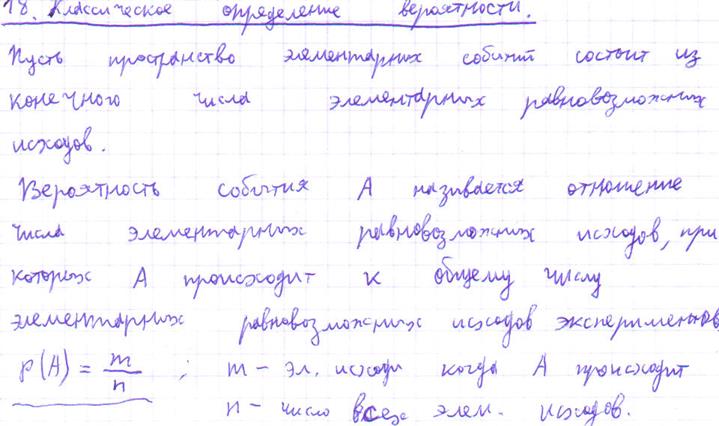 18. Классическое определение вероятности.
Пусть пространство элементарных событий состоит из
конечного числа элементарных равновозможных
исходов.
Вероятность события A называется отношение
числа элементарных равновозможных исходов, при
которых A происходит к общему числу
элементарных равновозможных исходов экспериментов
p(A) = m/n ; m – эл. исходы когда A происходит
n – число всех элем. исходов.